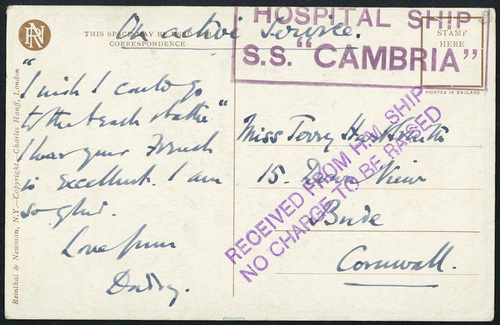 RN
THIS SPACE MAY BE USED FOR
CORRESPONDENCE
On active Service.
HOSPITAL SHIP
S.S. "CAMBRIA"
STAMP
HERE
PRINTED IN ENGLAND
"I wish I could go
to the beach & bathe"
I hear your French
is Excellent. I am
so glad.
Love from
Daddy.
Miss Terry
15. Down View
Bude
Cornwall.
RECEIVED FROM H.M. SHIP
NO CHARGE TO BE RAISED
Reinthal & Newman, N.Y.—Copyright—Charles Hauff, London